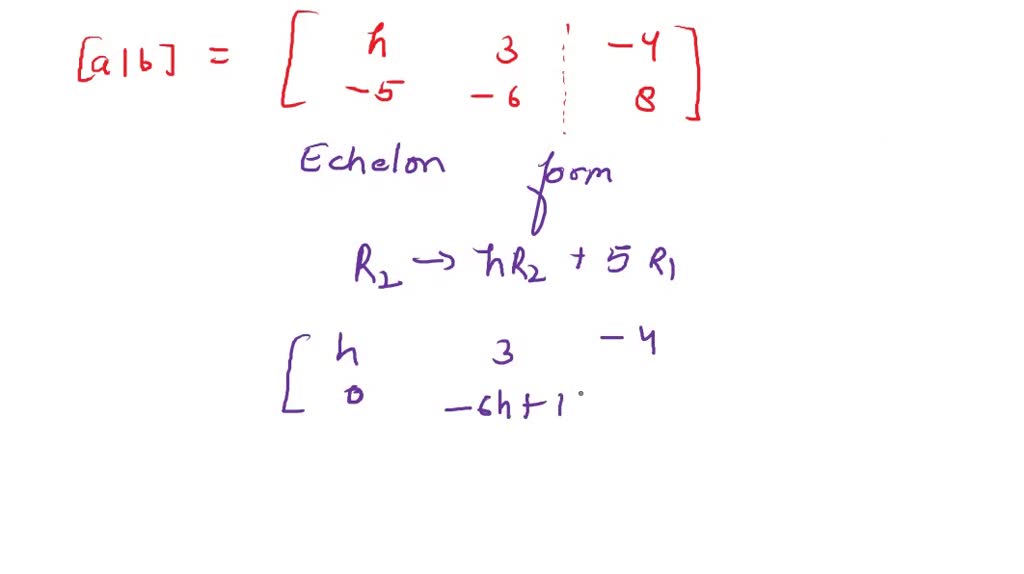 [a|b] = [ h 3 | -4 ]
-5 -6 | 8
Echelon form
R2 → hR2 + 5 R1
[ h 3 -4
0 -6h+1